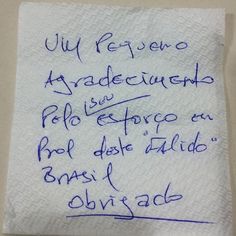 Um Pequeno
Agradecimento
Pelo seu esforço em
Prol deste "Falido"
Brasil
Obrigado